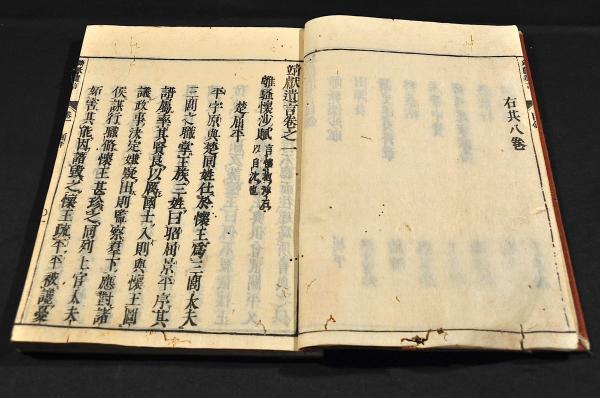 右共八卷
靖獻遺言卷之一
離騷懷沙賦 言懷抱沙石以自沈也
楚屈平
平字原與楚同姓仕於懷王爲三閭大夫
三閭之職掌王族三姓曰昭屈景平序其
譜屬率其賢良以厲國士入則與懷王圖
議政事決定嫌疑出則監察羣下應對諸
侯謀行職脩懷王甚珍之同列上官大夫
妬害其能因譖毀之懷王疏平平被讒憂